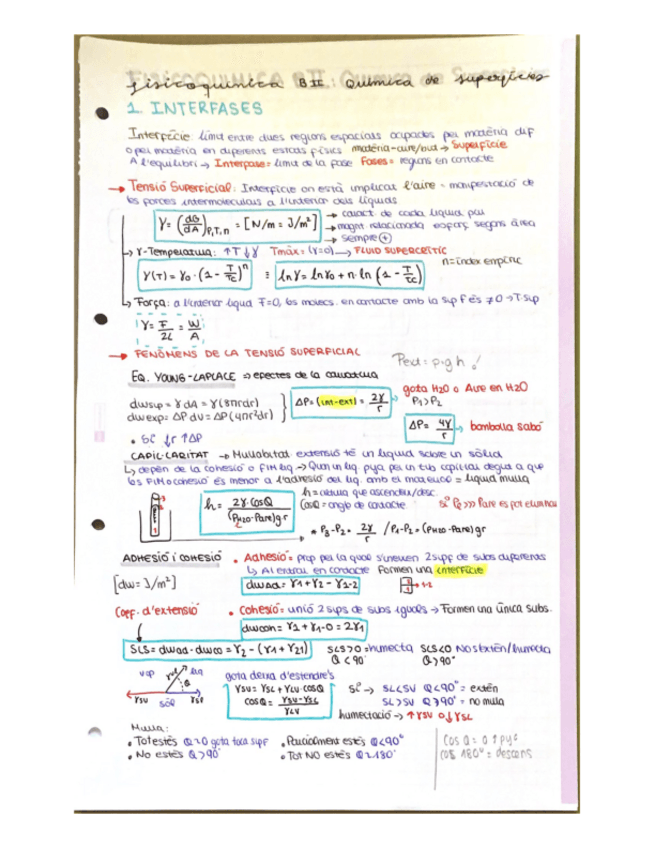 Fisicoquímica BII: Química de superfícies
1. INTERFASES
Interfície: límit entre dues regions espacials ocupades per matèria dif
o per matèria en diferents estats físics matèria-aire/buit → Superfície
A l'equilibri → Interfase = límit de la fase Fases = regions en contacte
→ Tensió Superficial: Interfície on està implicat l'aire = manifestació de
les forces intermoleculars a l'interior dels líquids
γ = (dG/dA)P,T,n = [N/m = J/m²]
→ caract de cada líquid pur
→ magnt relacionada esforç segons àrea
→ sempre (+)
→ γ-Temperatura: ↑T ↓γ Tmàx = (γ=0) → FLUID SUPERCRÍTIC
γ(T) = γ0 · (1 - T/Tc)^n = lnγ = lnγ0 + n·ln (1 - T/Tc)
n = índex empíric
→ Força: a l'interior líquid F=0, les molècs. en contacte amb la sup F és ≠ 0 → T sup
γ = F/2L = W/A
→ FENÒMENS DE LA TENSIÓ SUPERFICIAL
Phid = ρ·g·h !
EQ. YOUNG-LAPLACE ⇒ efectes de la curvatura
dwsup = γ dA = γ(8πrdr)
dwexp = ΔP dV = ΔP(4πr²dr)
ΔP = (int-ext) = 2γ/r
gota H2O o Aire en H2O
P1 > P2
ΔP = 4γ/r → bombolla sabó
• Si ↓r ↑ΔP
CAPIL·LARITAT → Mullabilitat extensió té un líquid sobre un sòlid
↳ depèn de la cohesió o FIM líq → Quan un líq. puja per un tub capilar degut a que
les FIM o cohesió és menor a l'adhesió del líq. amb el material = líquid mulla
h = 2γ·cosθ / (ρH2O - ρaire) g r
h = altura que ascendeix/desc.
cosθ = angle de contacte
Si ρl >>> ρaire es pot eliminar
* P3-P2 = 2γ/r / P1-P2 = (ρH2O - ρaire) g r
ADHESIÓ I COHESIÓ
• Adhesió = prop per la qual s'uneixen 2 supf de subs diferents
↳ Al entrar en contacte formen una interfície
[dw = J/m²]
dwad = γ1 + γ2 - γ1-2
→ 1-2
Coef. d'extensió
• Cohesió = unió 2 sups de subs iguals → Formen una única subs.
dwcoh = γ1 + γ1 - 0 = 2γ1
SLS = dwad - dwco = γ2 - (γ1 + γ21)
SLS>0 = humecta SLS<0 No s'extén/humecta
θ < 90° θ > 90°
vap γLV liq
θ
γSV sòl γSL
gota deixa d'estendre's
γSV = γSL + γLV · cosθ
cosθ = γSV - γSL / γLV
Si → SL<SV θ<90° = extén
SL>SV θ>90° = no mulla
humectació → ↑γSV o ↓γSL
Mulla:
• Tot estès θ=0 gota tota supf • Parcialment estès θ<90°
• No estès θ>90° • Tot NO estès θ=180°
Cos θ = 0 ↑ puja
cos 180° = descens